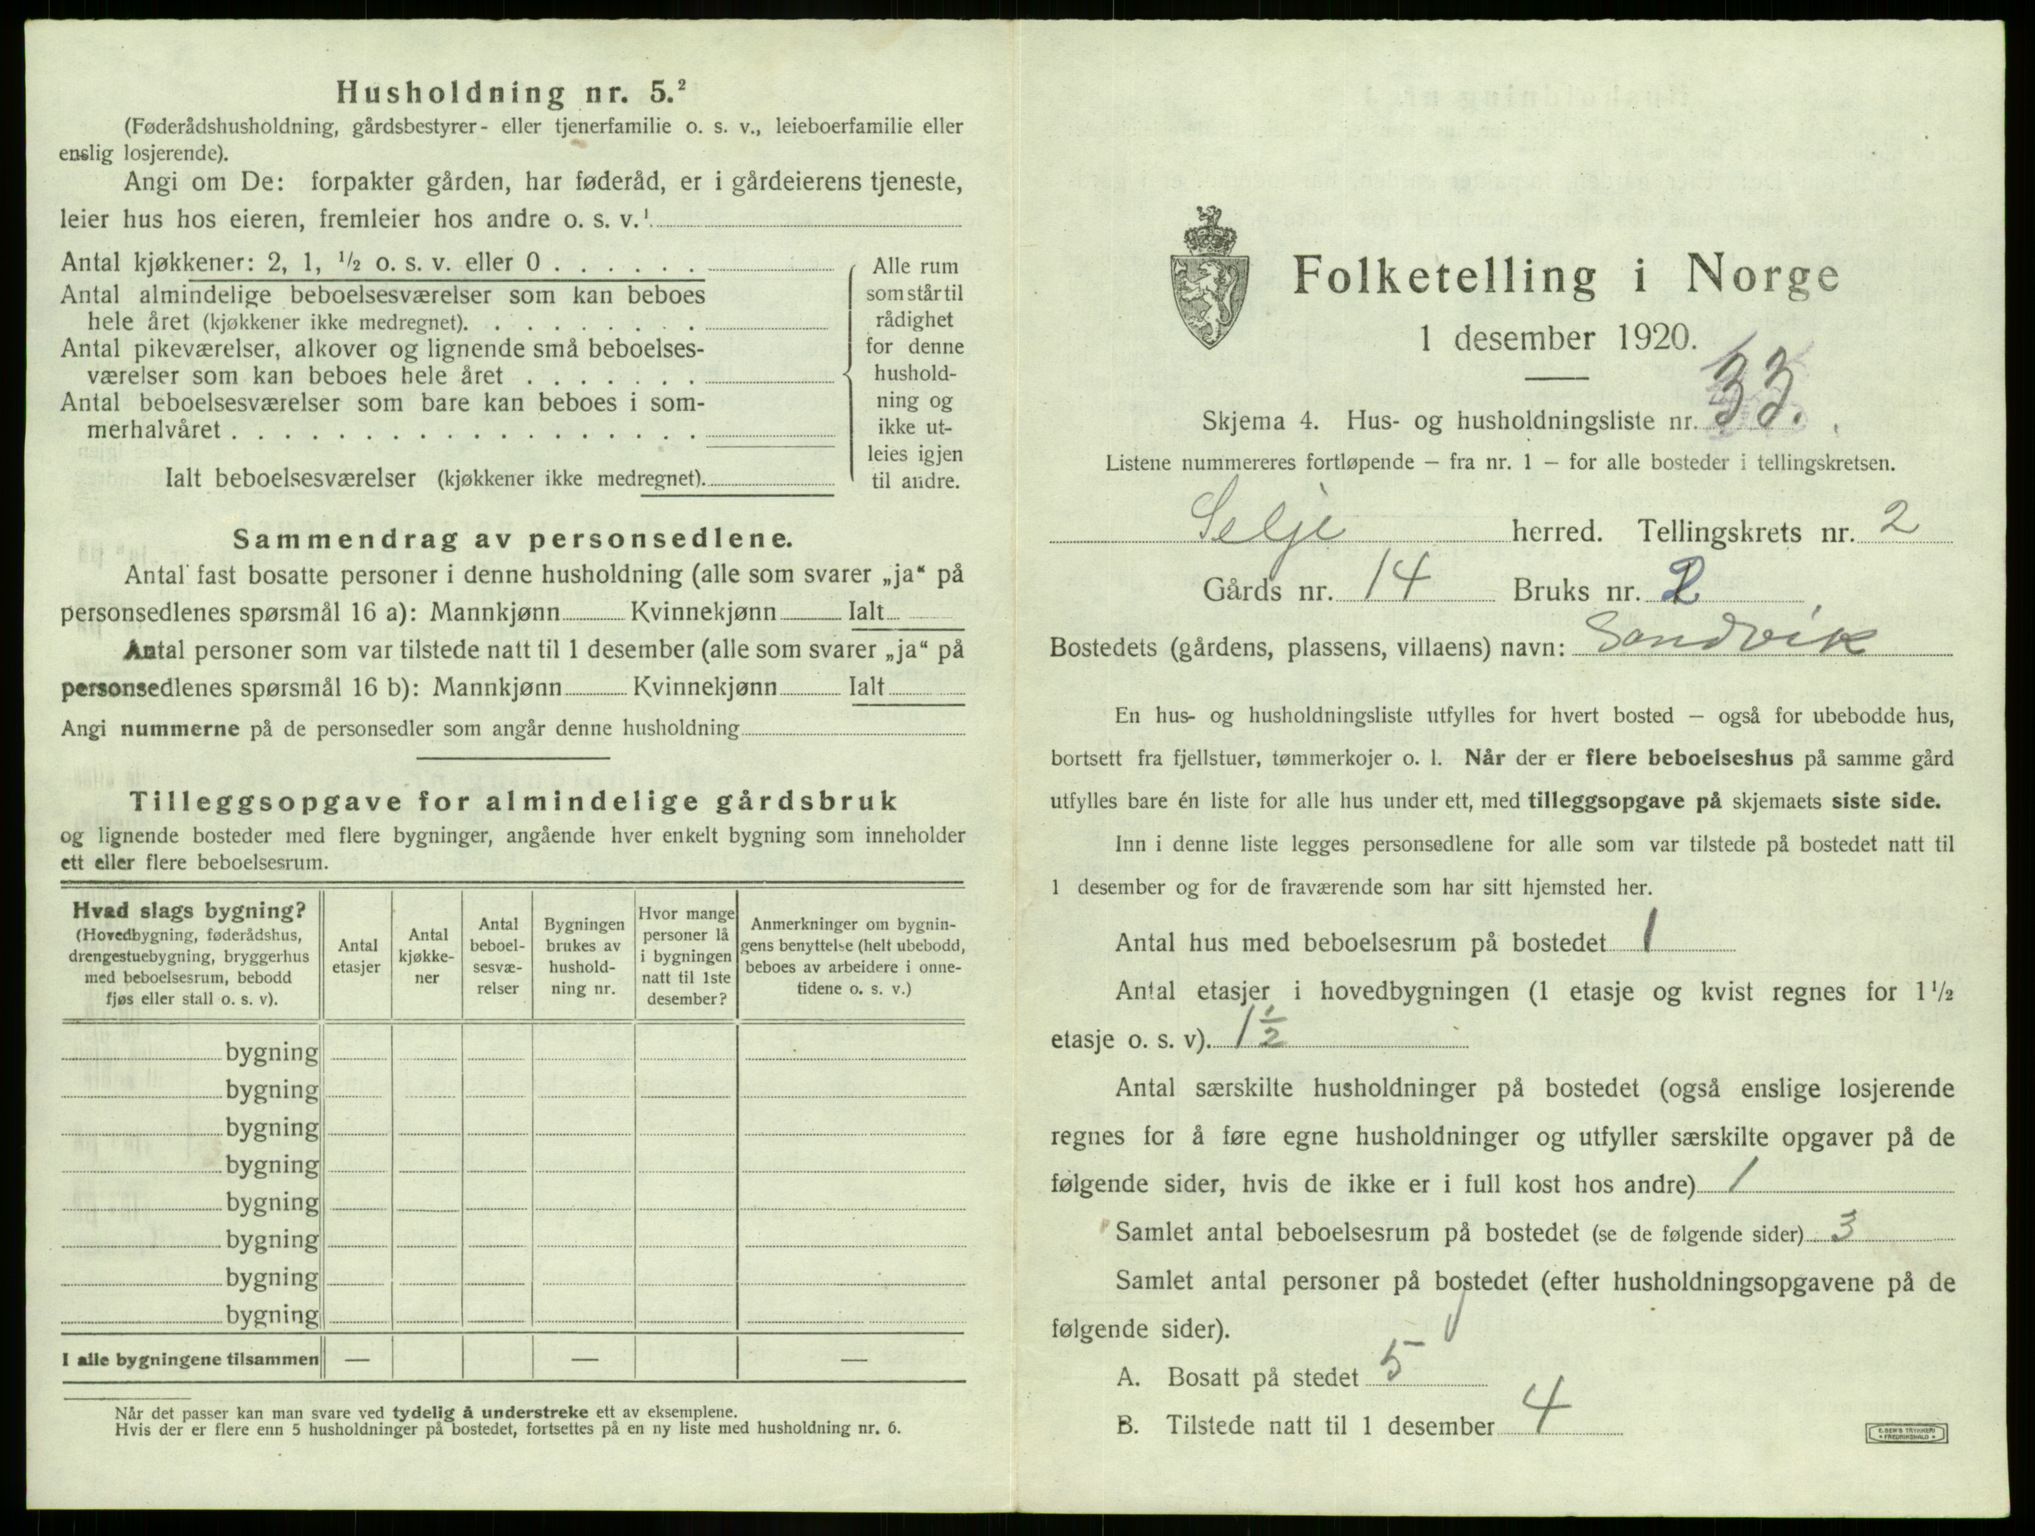 Husholdning nr. 5.²
(Føderådshusholdning, gårdsbestyrer- eller tjenerfamilie o. s. v., leieboerfamilie eller
enslig losjerende).
Angi om De: forpakter gården, har føderåd, er i gårdeierens tjeneste,
leier hus hos eieren, fremleier hos andre o. s. v.¹
Antal kjøkkener: 2, 1, ½ o. s. v. eller 0 . . . . . .
Antal almindelige beboelsesværelser som kan beboes
hele året (kjøkkener ikke medregnet). . . . . . . . .
Antal pikeværelser, alkover og lignende små beboelses-
værelser som kan beboes hele året . . . . . . .
Antal beboelsesværelser som bare kan beboes i som-
merhalvåret . . . . . . . . . . . . . . . . . .
Ialt beboelsesværelser (kjøkkener ikke medregnet).
Alle rum
som står til
rådighet
for denne
hushold-
ning og
ikke ut-
leies igjen
til andre.
Sammendrag av personsedlene.
Antal fast bosatte personer i denne husholdning (alle som svarer „ja“ på
personsedlenes spørsmål 16 a): Mannkjønn Kvinnekjønn Ialt
Antal personer som var tilstede natt til 1 desember (alle som svarer „ja“ på
personsedlenes spørsmål 16 b): Mannkjønn Kvinnekjønn Ialt
Angi nummerne på de personsedler som angår denne husholdning
Tilleggsopgave for almindelige gårdsbruk
og lignende bosteder med flere bygninger, angående hver enkelt bygning som inneholder
ett eller flere beboelsesrum.
Hvad slags bygning?
(Hovedbygning, føderådshus,
drengestuebygning, bryggerhus
med beboelsesrum, bebodd
fjøs eller stall o. s. v).
Antal
etasjer
Antal
kjøkke-
ner
Antal
beboel-
sesvæ-
relser
Bygningen
brukes av
hushold-
ning nr.
Hvor mange
personer lå
i bygningen
natt til 1ste
desember?
Anmerkninger om bygnin-
gens benyttelse (helt ubebodd,
beboes av arbeidere i onne-
tidene o. s. v.)
bygning
bygning
bygning
bygning
bygning
bygning
bygning
bygning
I alle bygningene tilsammen — — —
Når det passer kan man svare ved tydelig å understreke ett av eksemplene.
Hvis der er flere enn 5 husholdninger på bostedet, fortsettes på en ny liste med husholdning nr. 6.
Folketelling i Norge
1 desember 1920.
Skjema 4. Hus- og husholdningsliste nr. 33.
Listene nummereres fortløpende – fra nr. 1 – for alle bosteder i tellingskretsen.
Selje herred. Tellingskrets nr. 2
Gårds nr. 14 Bruks nr. 2
Bostedets (gårdens, plassens, villaens) navn: Sandvik
En hus- og husholdningsliste utfylles for hvert bosted – også for ubebodde hus,
bortsett fra fjellstuer, tømmerkojer o. l. Når der er flere beboelseshus på samme gård
utfylles bare én liste for alle hus under ett, med tilleggsopgave på skjemaets siste side.
Inn i denne liste legges personsedlene for alle som var tilstede på bostedet natt til
1 desember og for de fraværende som har sitt hjemsted her.
Antal hus med beboelsesrum på bostedet 1
Antal etasjer i hovedbygningen (1 etasje og kvist regnes for 1½
etasje o. s. v). 1½
Antal særskilte husholdninger på bostedet (også enslige losjerende
regnes for å føre egne husholdninger og utfyller særskilte opgaver på de
følgende sider, hvis de ikke er i full kost hos andre) 1
Samlet antal beboelsesrum på bostedet (se de følgende sider) 3
Samlet antal personer på bostedet (efter husholdningsopgavene på de
følgende sider).
A. Bosatt på stedet 5
B. Tilstede natt til 1 desember 4
E. SEM'S TRYKKERI
FREDRIKSHALD